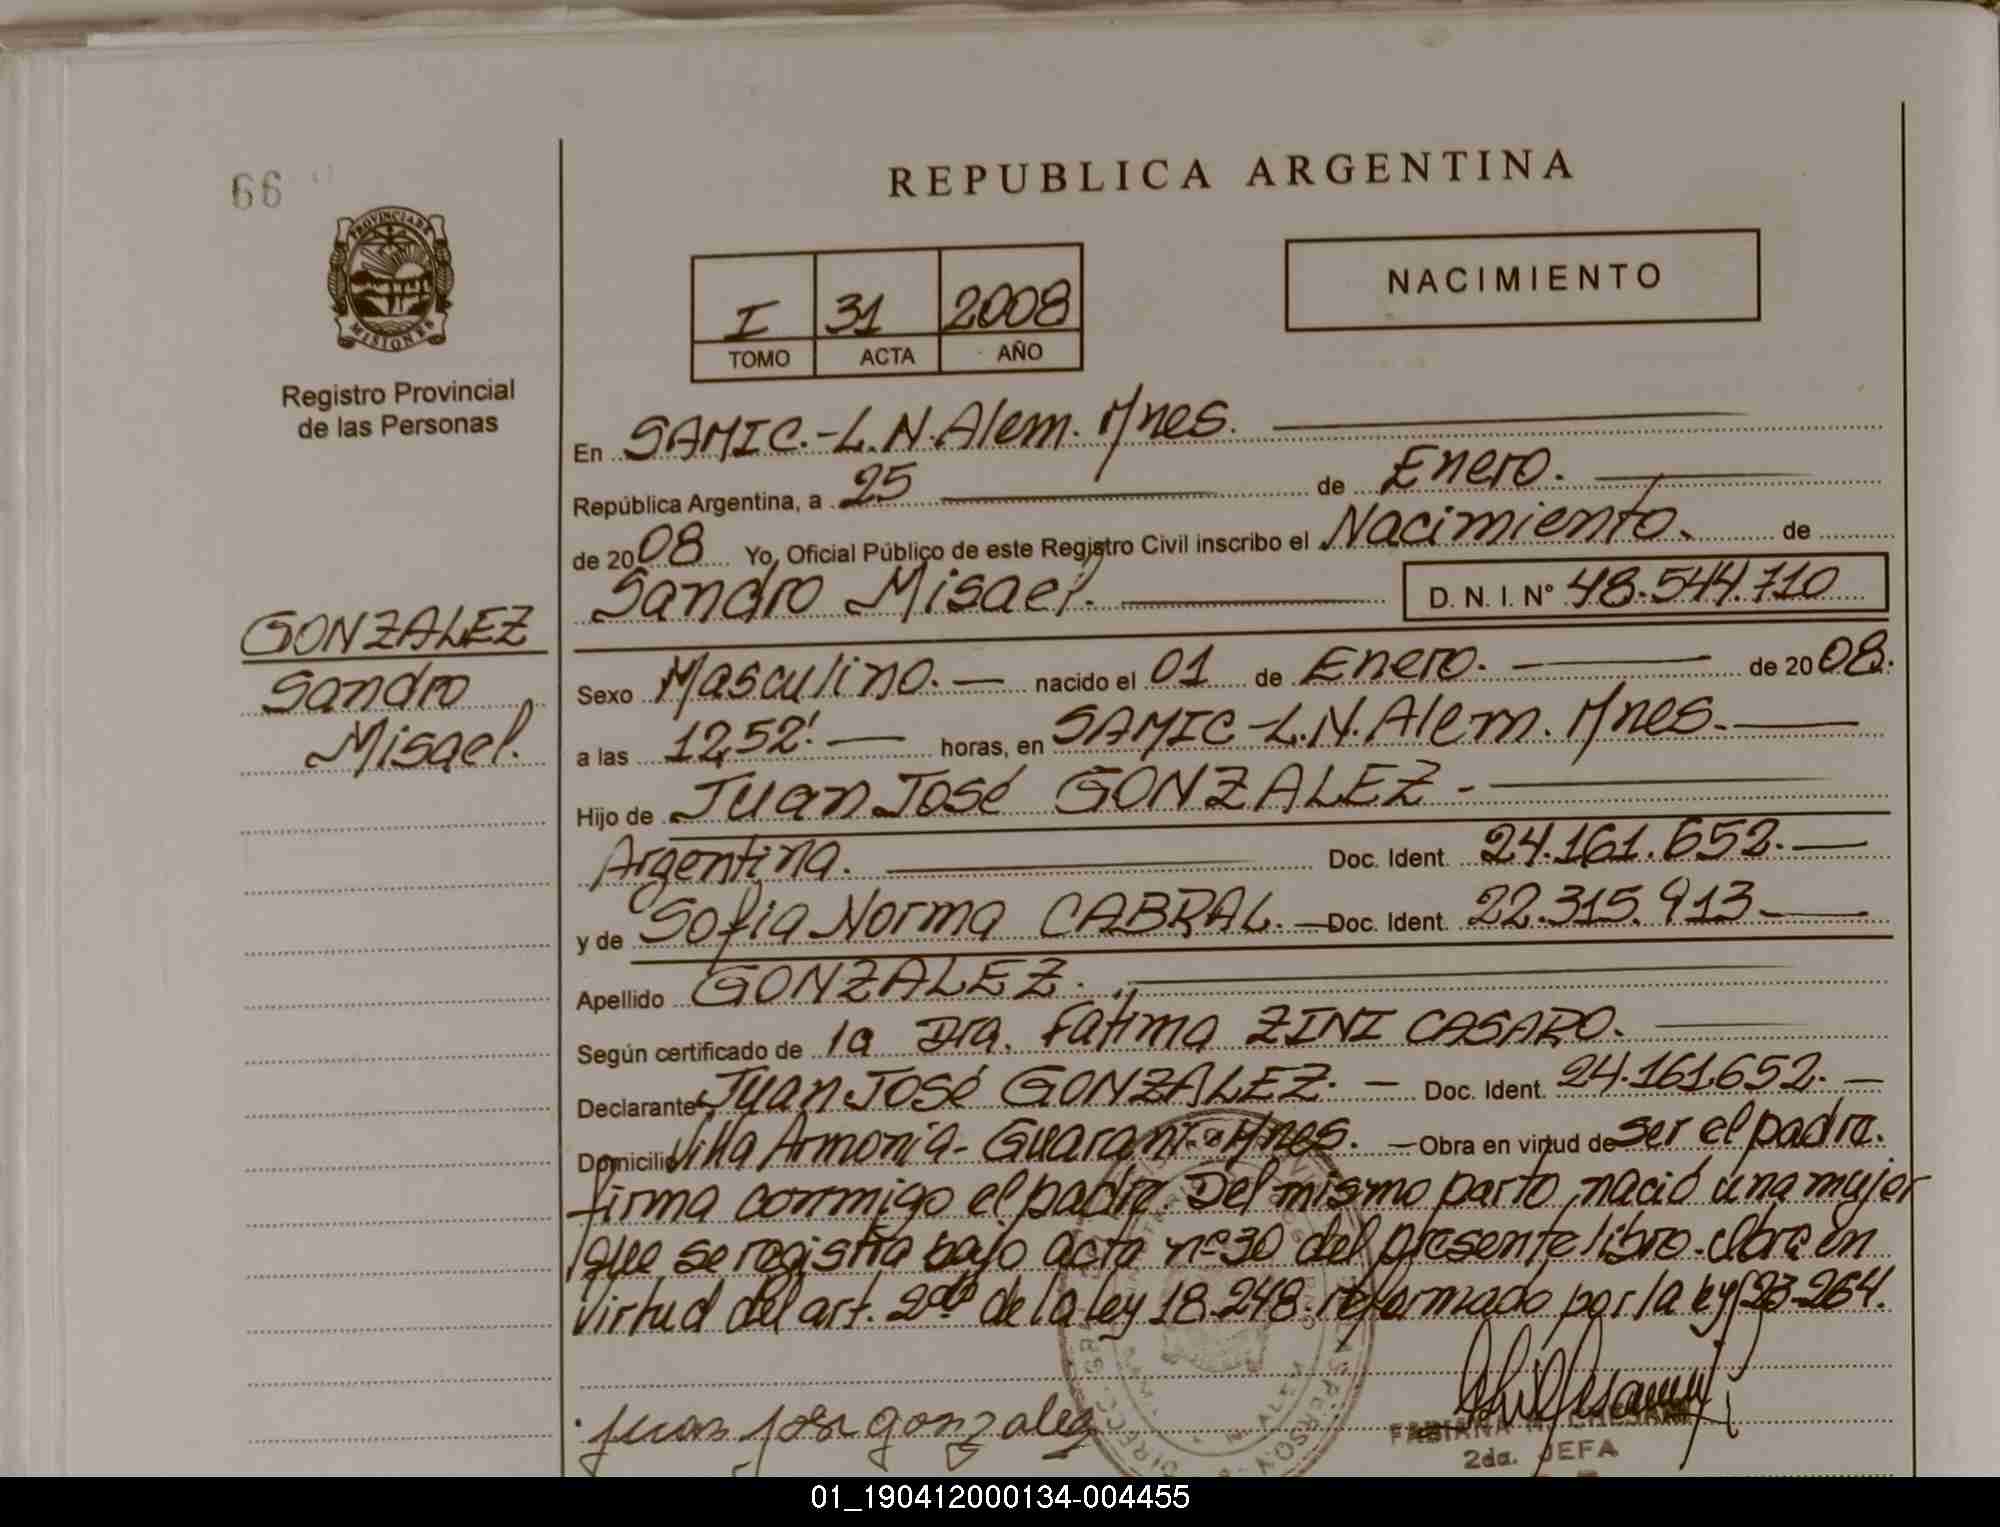 66
REPUBLICA ARGENTINA
PROVINCIA DE
MISIONES
Registro Provincial
de las Personas
I 31 2008
TOMO ACTA AÑO
NACIMIENTO
En SAMIC.-L.N.Alem. Mnes.
República Argentina, a 25 de Enero.
de 2008 Yo, Oficial Público de este Registro Civil inscribo el Nacimiento. de
Sandro Misael. D. N. I. N° 48.544.710
GONZALEZ
Sandro
Misael.
Sexo Masculino. nacido el 01 de Enero. de 2008.
a las 12,52' horas, en SAMIC-L.N.Alem. Mnes.
Hijo de Juan José GONZALEZ -
Argentina. Doc. Ident. 24.161.652.
y de Sofia Norma CABRAL. Doc. Ident. 22.315.913
Apellido GONZALEZ.
Según certificado de la Dra. Fatima ZINI CASARO.
Declarante Juan José GONZALEZ. Doc. Ident. 24.161.652.
Domicilio Villa Armonia- Guarani- Mnes. Obra en virtud de ser el padre.
firma conmigo el padre. Del mismo parto, nació una mujer
que se registra bajo acta nº 30 del presente libro. Obra en
virtud del art. 2do de la ley 18.248. reformado por la ley 23.264.
Juan José gonzalez
FABIANA
2da. JEFA
01_190412000134-004455